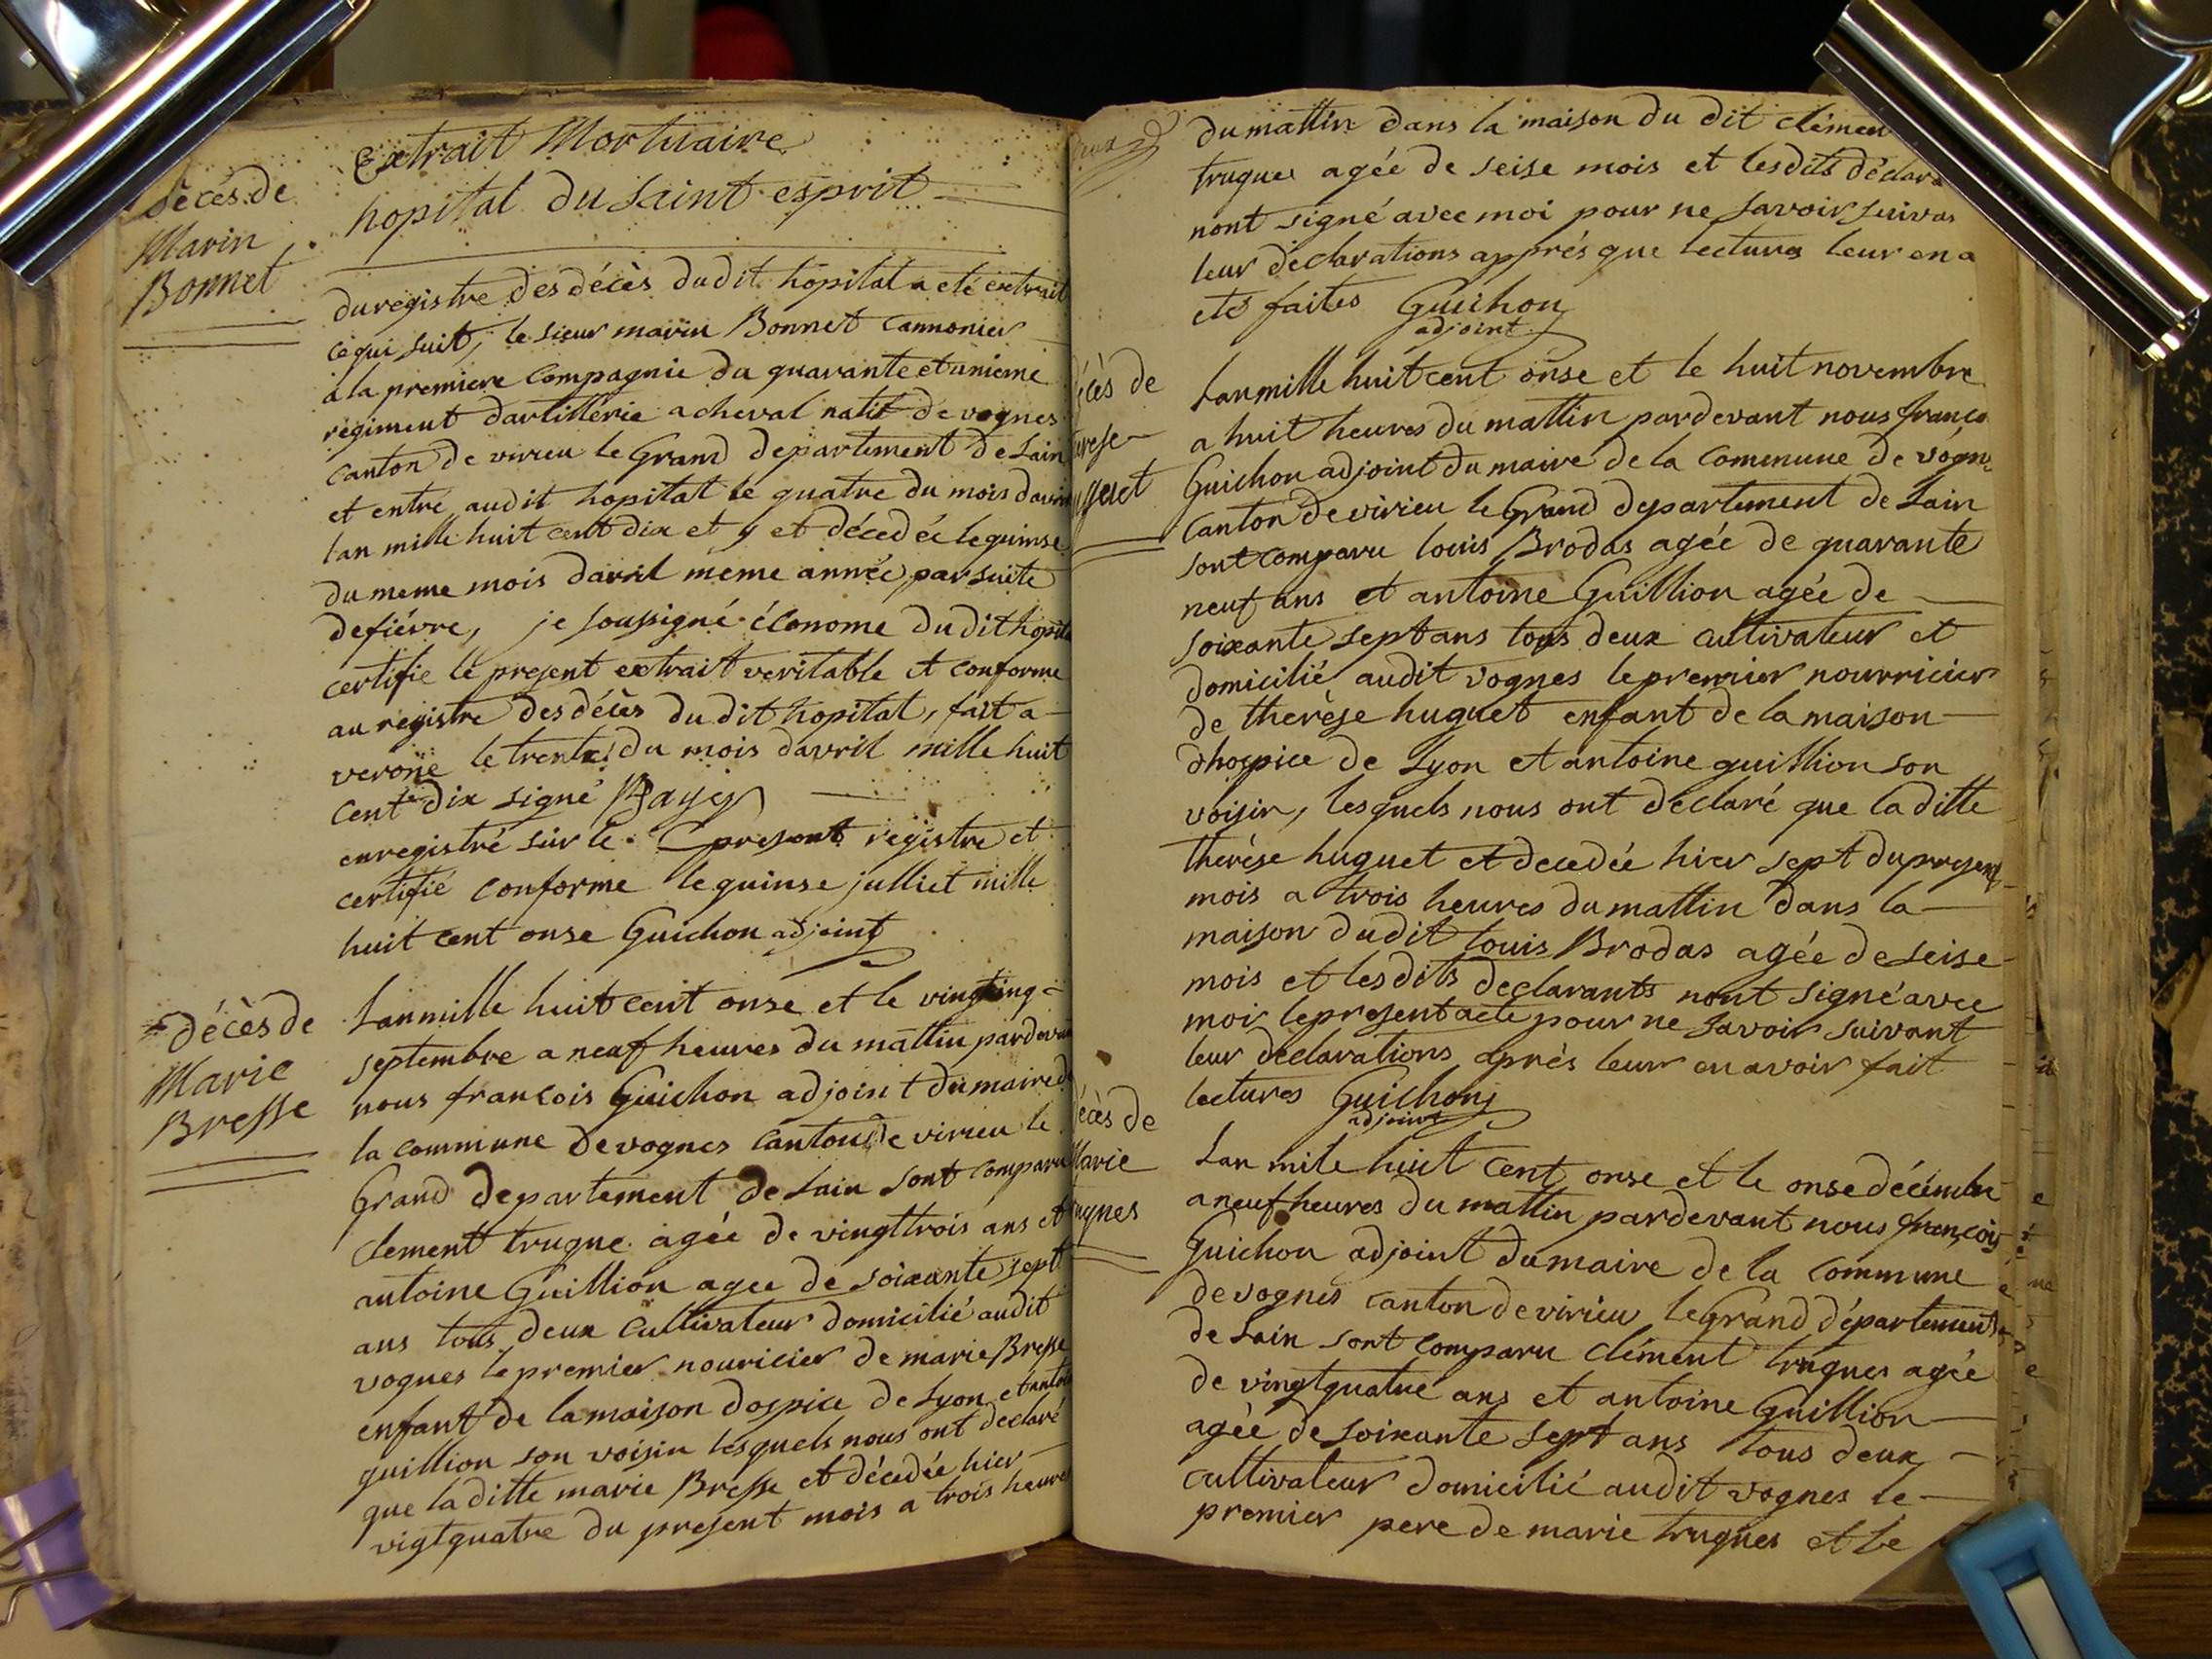 Extrait Mortuaire
hopital du saint esprit
décès de
Marin
Bonnet
du registre des décès du dit hôpital a eté extrait
ce qui suit, le sieur marin Bonnet Cannonier
à la premiere Compagnie du quarante et unieme
régiment dartillérie a cheval natif de vognes
canton de virieu le Grand departement de Lain
et entré audit hopital le quatre du mois davril
lan mille huit cent dix et y et décedée le quinse
du meme mois davril meme année par suite
de fiévre, je soussigné économe du dit hopital
certifie le present extrait veritable et conforme
au registre des décès du dit hopital, fait a
verone le trente du mois davril mille huit
cent dix signé
enregistré sur le present registre et
certifié conforme le quinse julliet mille
huit cent onse Guichon adjoint
décès de
Marie
Bresse
Lan mille huit cent onse et le vingt
septembre a neuf heures du mattin pardevant
nous francois Guichon adjoint du maire de
la commune de vognes canton de virieu le
Grand departement de Lain sont comparu
clement trugne agée de vingttrois ans et
antoine Guillion agee de soixante sept
ans tous deux cultivateur domicilié audit
vognes le premier nouricier de marie Bresse
enfant de la maison dospice de Lyon et antoine
guillion son voisin lesquels nous ont declaré
que la ditte marie Bresse et décedée hier
vigtquatre du present mois a trois heures
du mattin dans la maison du dit clémen
trugnes agée de seise mois et lesdits déclara
nont signé avec moi pour ne savoir suivan
leur déclarations apprés que lectures leur en a
eté faites Guichon
adjoint
écès de
erese
uguet
Lan mille huit cent onse et le huit novembre
a huit heures du mattin pardevant nous franco
Guichon adjoint du maire de la Commune de vogne
canton de virieu le Grand departement de Lain
sont comparu louis Brodas agée de quarante
neuf ans et antoine Guillion agée de
soixante sept ans tous deux cultivateur et
domicilié audit vognes le premier nourricier
de therèse huguet enfant de la maison
dhospice de Lyon et antoine guillion son
voisin, lesquels nous ont déclaré que la ditte
therèse huguet et decedée hier sept du present
mois a trois heures du mattin dans la
maison dudit louis Brodas agée de seise
mois et lesdits declarants nont signé avec
moi le present acte pour ne savoir suivant
leur declarations aprés leur en avoir fait
lectures Guichon
adjoint
écès de
Marie
ugnes
Lan mile huit cent onse et le onse décembre
a neuf heures du mattin pardevant nous françois
Guichon adjoint du maire de la Commune
de vognes canton de virieu le Grand département
de Lain sont comparu clément trugnes agée
de vingtquatre ans et antoine Guillion
agée de soixante sept ans tous deux
cultivateur domicilié audit vognes le
premier pere de marie trugnes et le